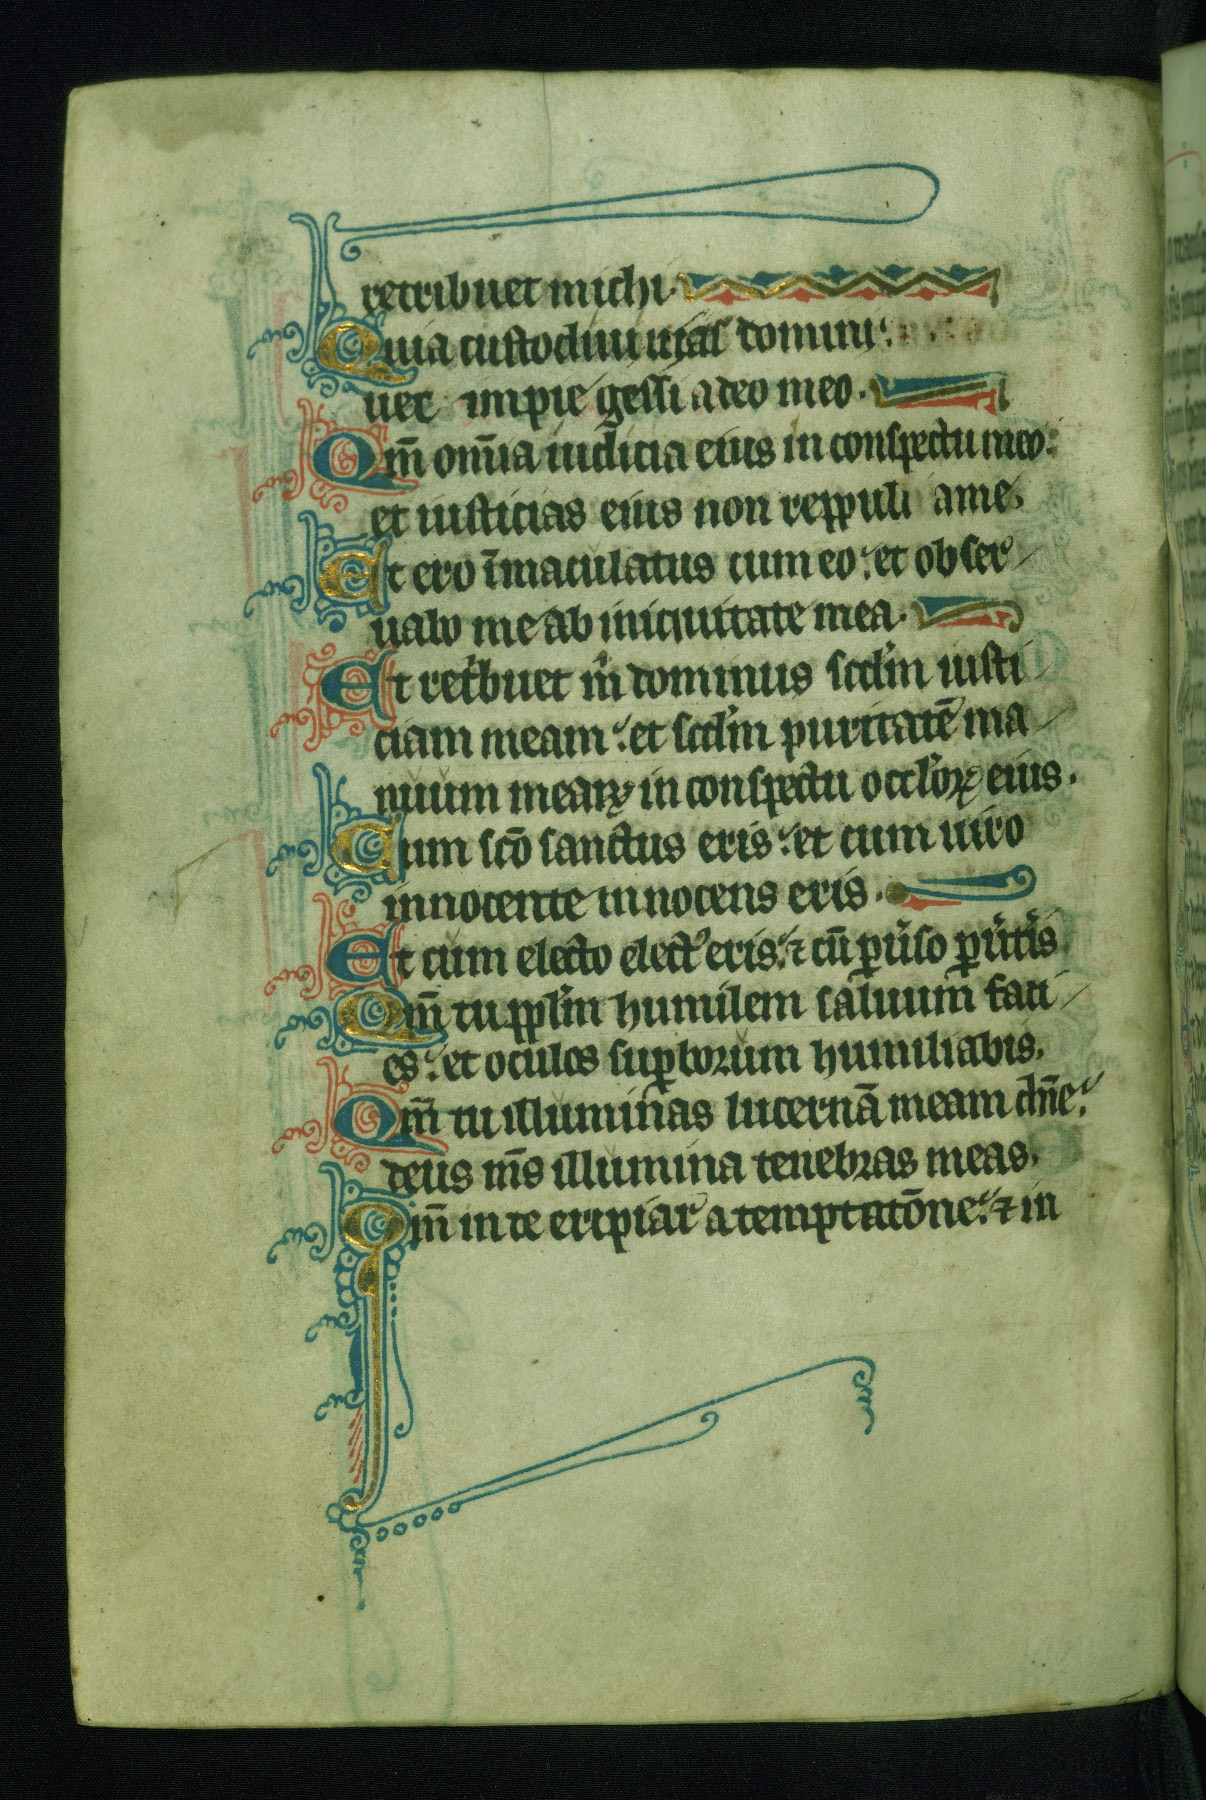 retribuet michi.
Quia custodiui uias domini:
nec impie gessi a deo meo.
Qm̄ om̄ia iudicia eius in conspectu meo:
et iusticias eius non reppuli a me.
Et ero īmaculatus cum eo: et obser
uabo me ab iniquitate mea.
Et ret'buet m̍ dominus scd'm iusti
ciam meam: et scd'm puritatē ma
nuum mearꝝ in conspectu occl'orꝝ eius.
Cum scō sanctus eris: et cum uiro
innocente innocens eris.
Et cum electo elect᾽ eris: ⁊ cū ꝑu̍so ꝑu̍t̍is
Qm̄ tu ppl'm humilem saluum faci
es: et oculos suꝑborum humiliabis.
Qm̄ tu illuminas lucernā meam dn̄e:
deus m̄s illumina tenebras meas.
Qm̄ in te eripiar a temptatōne: ⁊ in